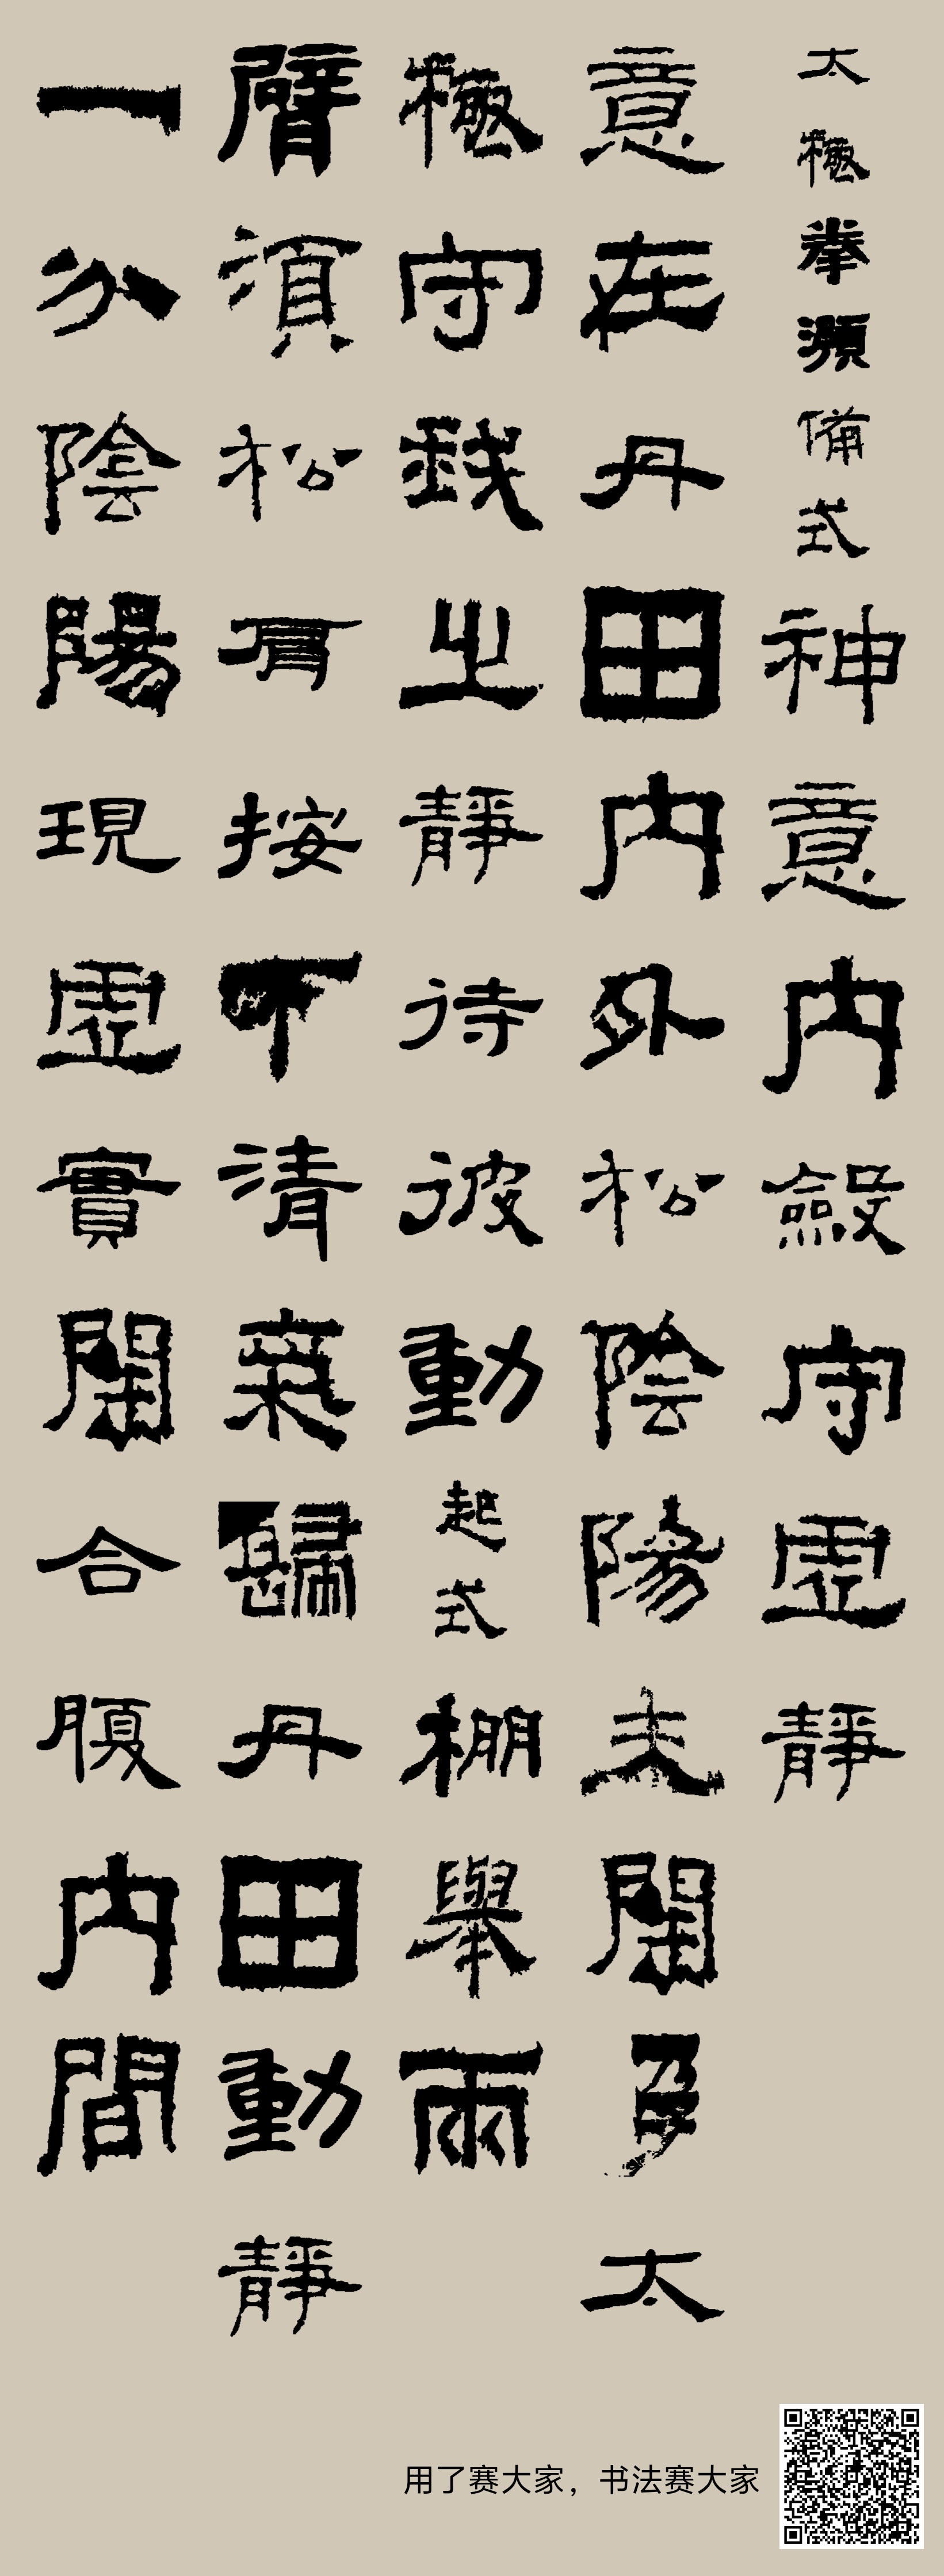 太極拳預備式神意内斂守虛靜
意在丹田内外松陰陽未開太
極守我之靜待彼動起式棚舉兩
臂須松肩按下清氣歸丹田動靜
一分陰陽現虛實開合腹内間
用了赛大家，书法赛大家